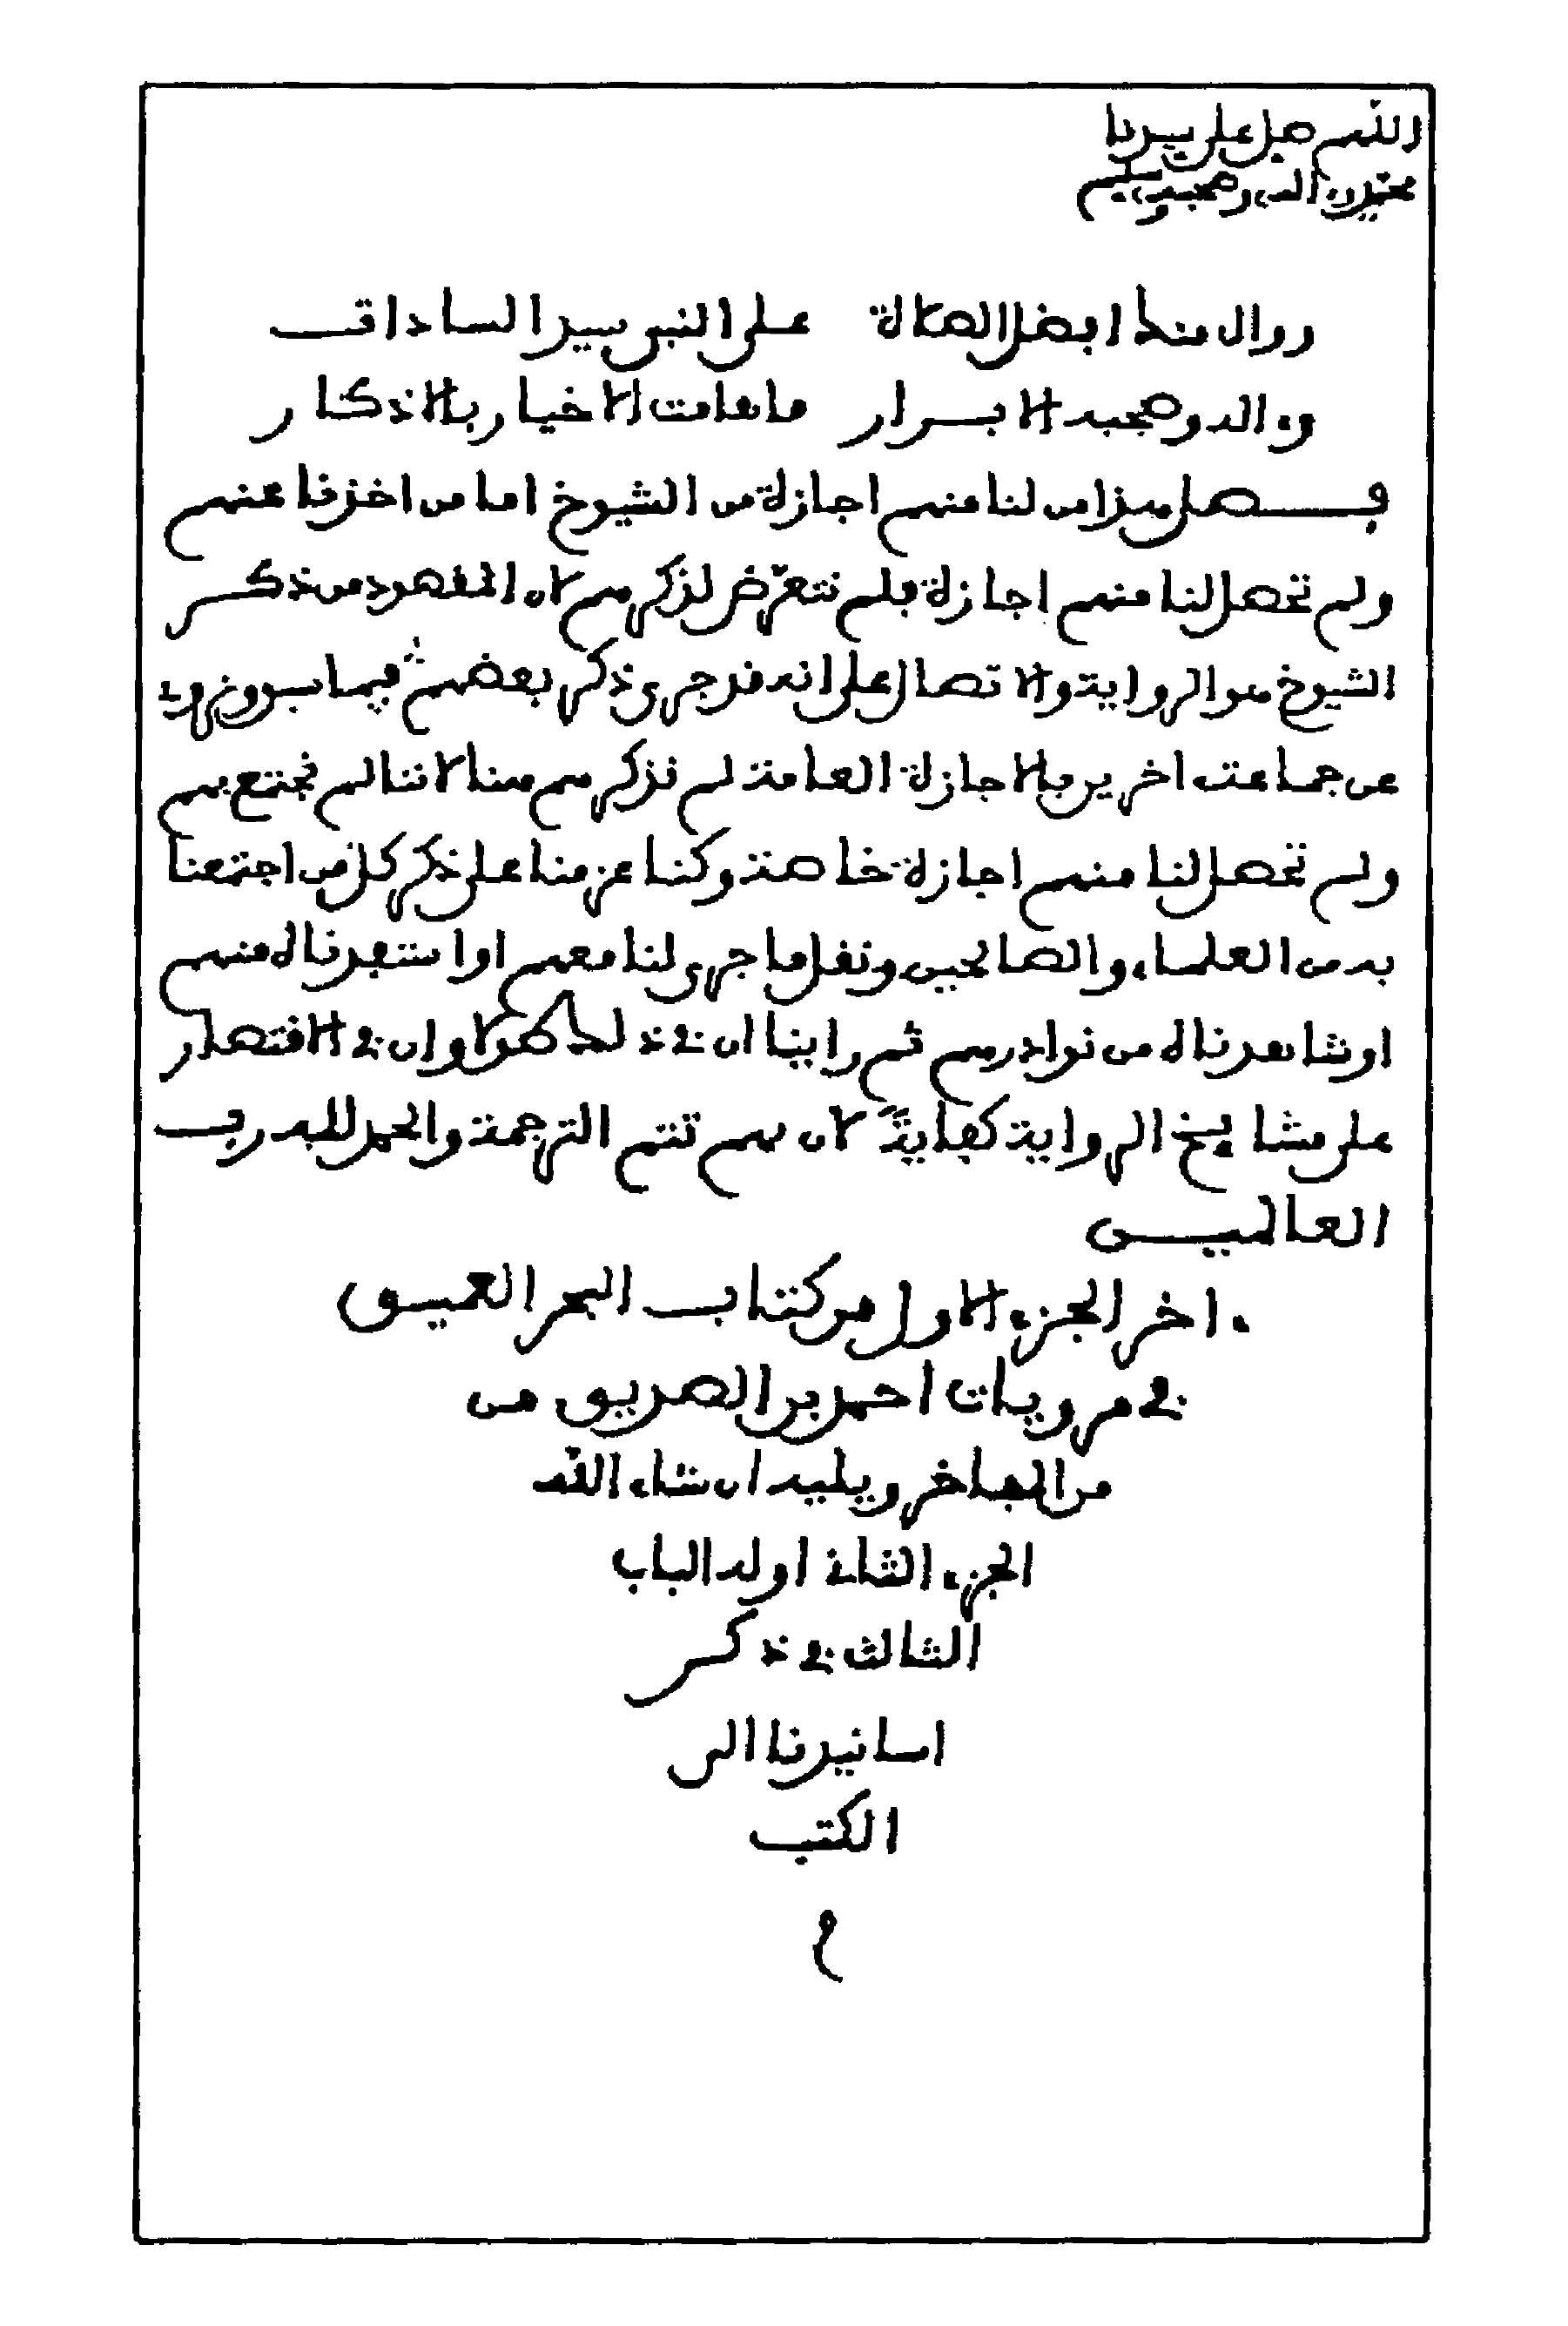 اللهم صل على سيدنا
محمد وءاله وصحبه وسلم
ووال منك افضل الصلاة على النبي سيد السادات
وءاله وصحبه الابرار ما فاهت الاخيار بالاذكار
فصل هذا من لنا منهم اجازة من الشيوخ اما من اخذنا عنهم
ولم تحصل لنا منهم اجازة فلم نتعرض لذكرهم لان المقصود من ذكر
الشيوخ هو الرواية والاتصال على انه قد جرى ذكر بعضهم فيما سبق ونروي
عن جماعة اخرين بالاجازة العامة لم نذكرهم هنا لاننا لم نجتمع بهم
ولم تحصل لنا منهم اجازة خاصة وكنا عزمنا على ذكر كل من اجتمعنا
به من العلماء والصالحين ونقل ما جرى لنا معهم او استفدناه منهم
او شاهدناه من نوادرهم ثم راينا ان في ذلك طولا وان في الاقتصار
على مشايخ الرواية كفاية لان بهم تتم الترجمة والحمد لله رب
العالمين
ءاخر الجزء الاول من كتاب البحر العميق
في مرويات احمد بن الصديق من
من المفاخر ويليه ان شاء الله
الجزء الثاني اوله الباب
الثالث في ذكر
اسانيدنا الى
الكتب
م